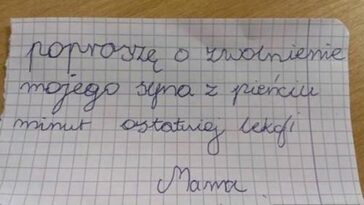 poproszę o zwolnienie
mojego syna z pieńciu
minut ostatniej lekcji
Mama